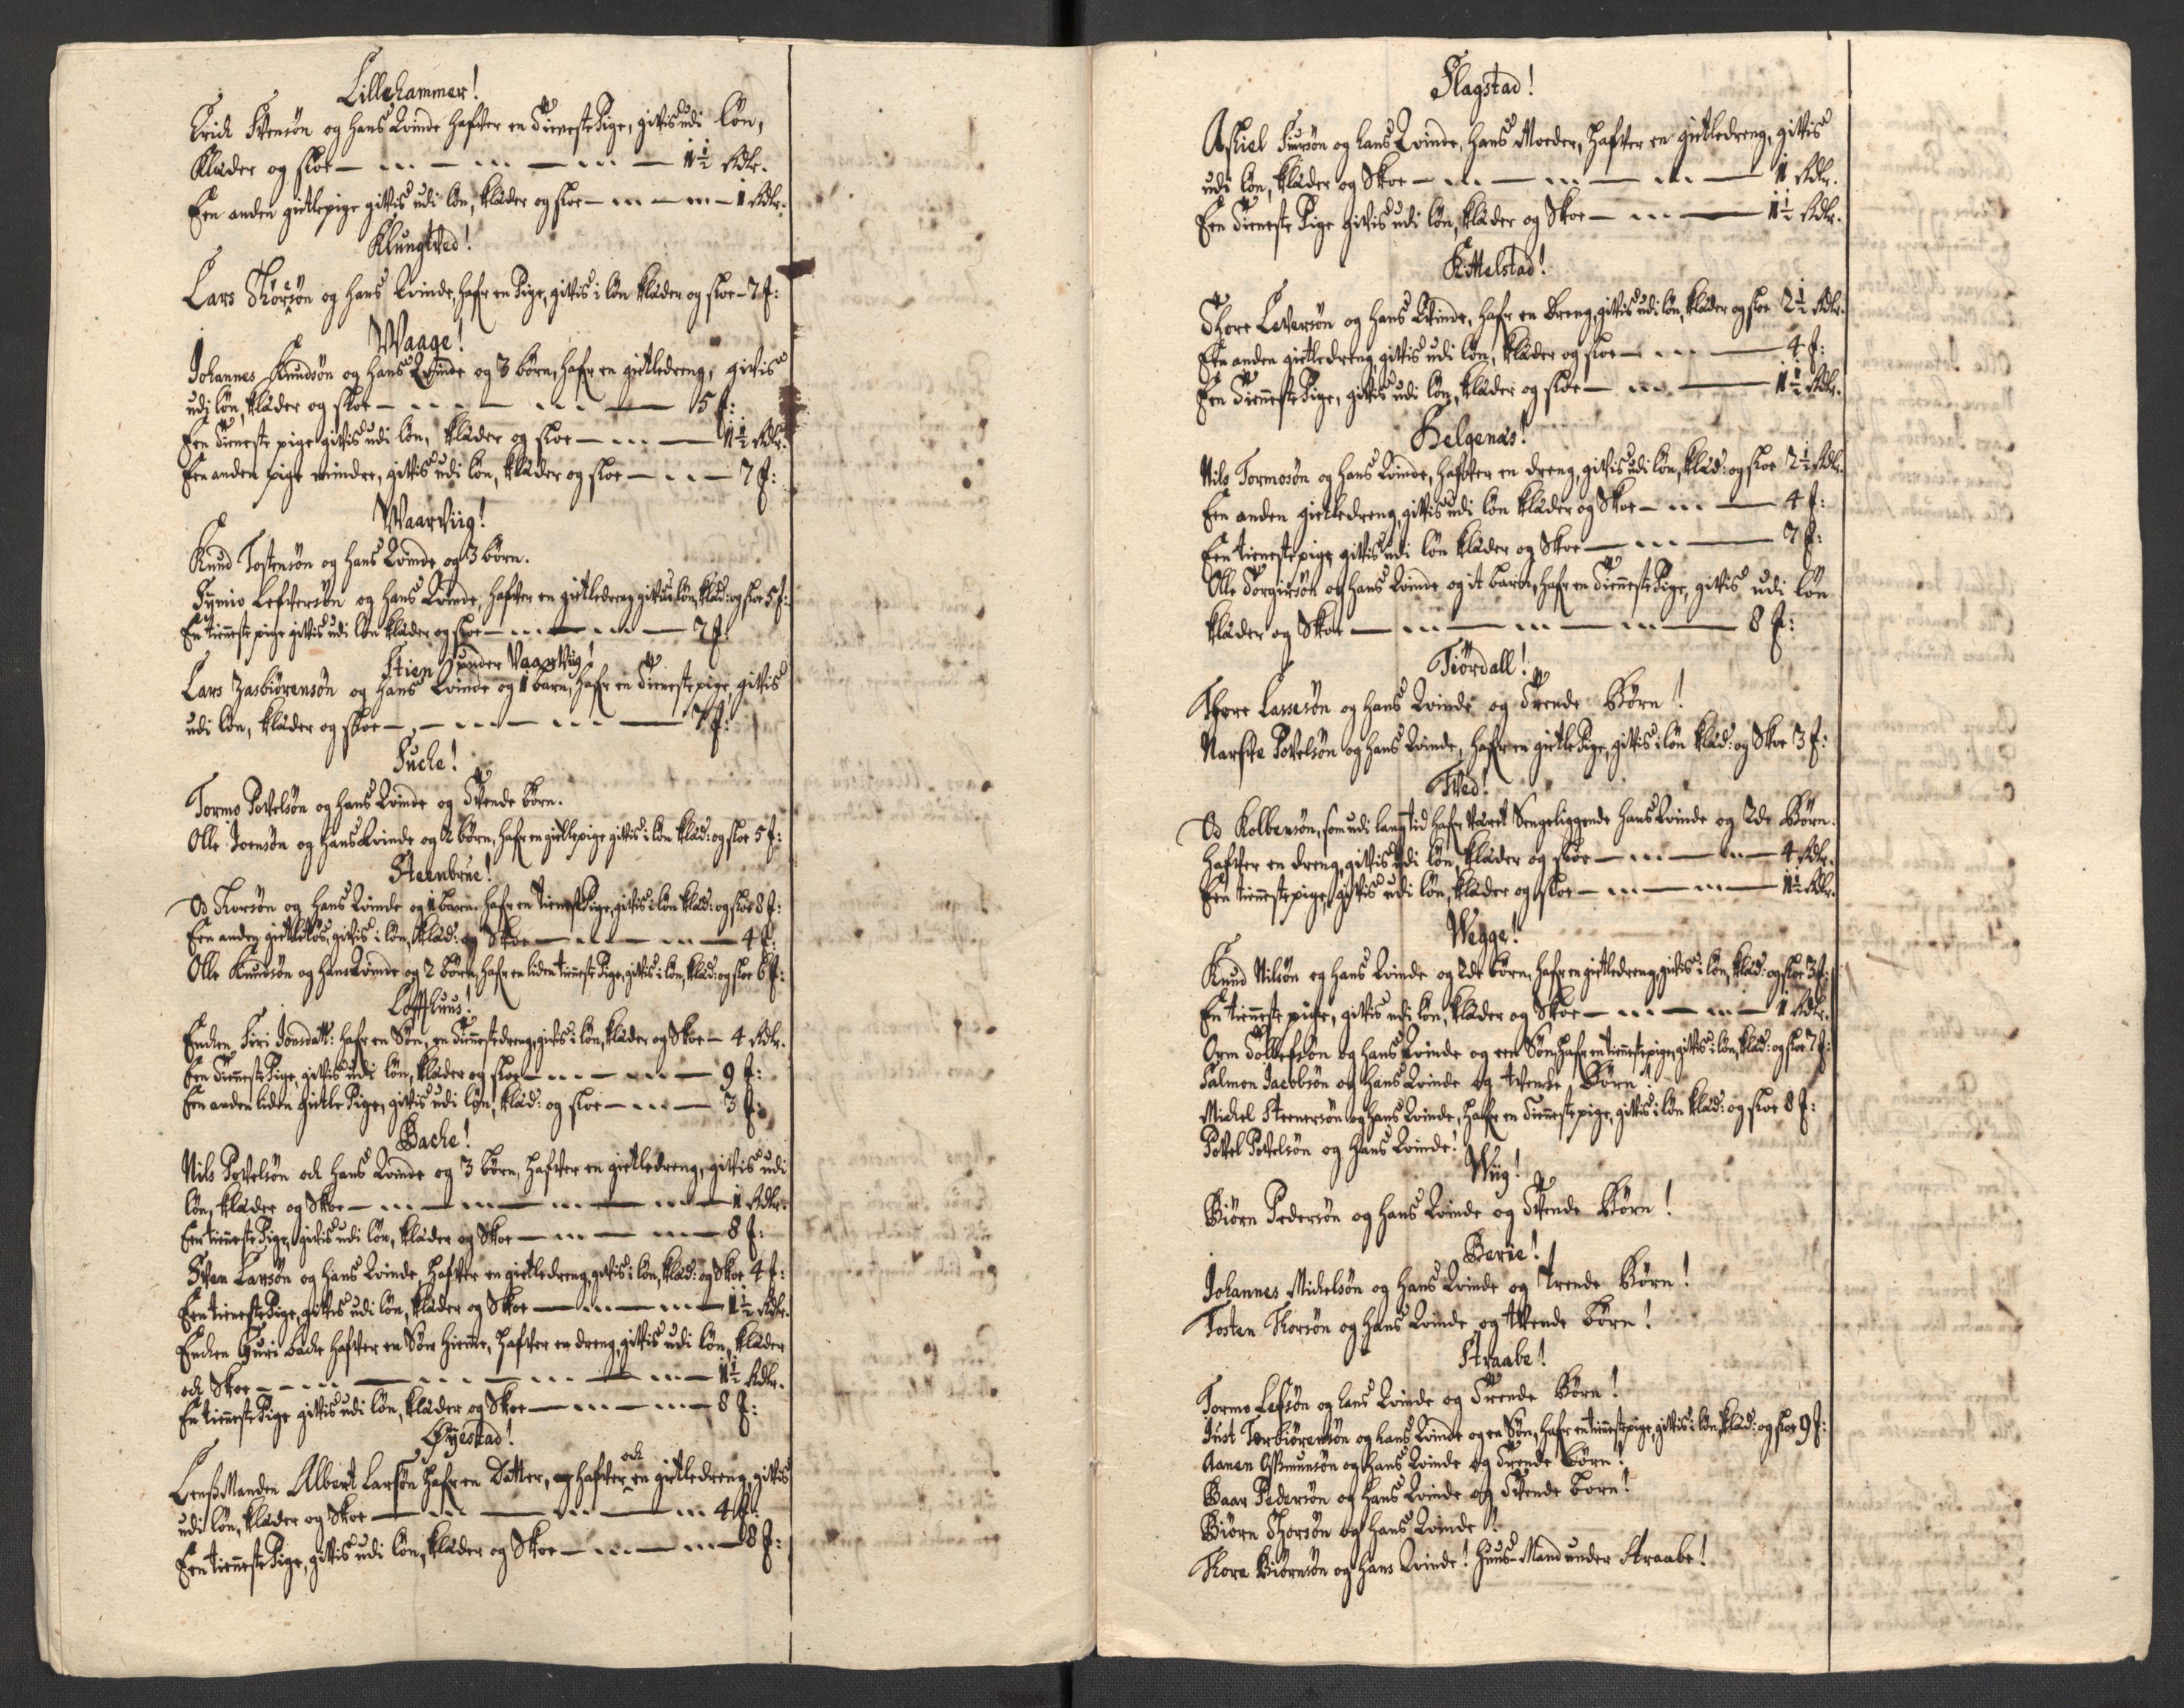 Lillehammer!
Erich Svensön og hans Qvinde hafver en Tieneste Pige, givis udi lön,
Klæder og skoe — 1½ Rdlr.
Een anden gietlepige givis udi lön, klæder og skoe — 1 Rdlr.
Klungtved!
Lars Thorsön og hans Qvinde, hafr en Pige, givis i lön klæder og skoe - 7 f:
Waage!
Johannes Knudsön og hans Qvinde og 3 börn, hafr en gietledreng, givis
udi lön, klæder og skoe — 5 f:
Een Tieneste pige givis udi lön, klæder og skoe — 1½ Rdlr.
Een anden pige mindre, givis udi lön, klæder og skoe — 7 f:
Waarviig!
Knud Tostensön og hans Qvinde og 3 börn.
Leffversön og hans Qvinde, hafver en gietledreng givis i lön, klæd: og skoe 5 f:
En tieneste pige givis udi lön klæder og skoe — 7 f:
Stien under Vaarviig!
Lars Zasbiörensön og hans Qvinde og 1 barn, hafr en Tienestepige, givis
udi lön, klæder og skoe — 7 f:
Fuche!
Tormo Povelsön og hans Qvinde og Tvende börn.
Olle Joensön og hans Qvinde og 2 börn, hafr en gietlepige givis i lön klæd: og skoe 5 f:
Steenbrue!
Od Thorsön og hans Qvinde og 1 barn hafr en Tieneste Pige, givis i lön klæd: og skoe 8 f:
Een anden gietletös, givis i lön, klæd: og Skoe — 4 f:
Olle Knudsön og hans Qvinde og 2 börn, hafr en liden tieneste Pige, givis i lön, klæd: og skoe 6 f:
Loffthuus!
Enchen Siri Jonsdatt: hafr en Sön, en Tienestedreng, givis i lön, klæder og Skoe — 4 Rdlr.
Een Tieneste Pige, givis udi lön, klæder og skoe — 9 f:
Een anden liden gietle Pige, givis udi lön, klæd: og skoe — 3 f:
Bache!
Nils Povelsön och hans Qvinde og 3 börn, hafver en gietledreng, givis udi
lön, klæder og Skoe — 1 Rdlr.
Een tieneste Pige, givis udi lön, klæder og Skoe — 8 f:
Sven Larsön og hans Qvinde, hafver en gietledreng, givis i lön, klæd: og Skoe 4 f:
Een tieneste Pige, givis udi lön, klæder og Skoe — 1½ Rdlr.
Enchen Guri Bache hafver en Sön hiemme, hafver en dreng, givis udi lön, klæder
och Skoe — 1½ Rdlr.
En tieneste Pige givis udi lön, klæder og Skoe — 8 f:
Øyestad!
Lenssmanden Albert Larsön hafr en Datter, och hafver en gietledreng, givis
udi lön, klæder og Skoe — 4 f:
Een tieneste Pige, givis udi lön, klæder og Skoe — 8 f:
Flagstad!
Askiel Siursön og hans Qvinde, hans Moeder, hafver en gietledreng, givis
udi lön, klæder og Skoe — 1 Rdlr.
Een Tieneste Pige givis udi lön, klæder og Skoe — 1½ Rdlr.
Kittelstad!
Thore Leversön og hans Qvinde, hafr en dreng, givis udi lön, klæder og skoe 2½ Rdlr.
Een anden gietledreng givis udi lön, klæder og skoe — 4 f:
Een Tieneste Pige, givis udi lön, klæder og skoe — 1½ Rdlr.
Helgenæs!
Nils Tormosön og hans Qvinde, hafver en dreng, givis udi lön, klæd: og skoe 2½ Rdlr.
Een anden gietledreng, givis udi lön klæder og Skoe — 4 f:
Een tienestepige givis udi lön klæder og Skoe — 7 f:
Olle Torgiersön og hans Qvinde og it barn, hafr en Tieneste Pige, givis udi lön
klæder og Skoe — 8 f:
Tiördall!
Thore Lassesön og hans Qvinde og Trende Börn!
Narfve Povelsön og hans Qvinde, hafr en gietle Pige, givis i lön klæd: og Skoe 3 f:
Tved!
Od Kolbensön, som udi lang tid hafr Været Sengeliggende hans Qvinde og 2de Börn.
hafver en dreng, givis udi lön, klæder og skoe — 4 Rdlr.
Een tienestepige, givis udi lön, klæder og skoe — 1½ Rdlr.
Wegge!
Knud Nilsön og hans Qvinde og 2de börn, hafr en gietledreng, givis i lön, klæd: og skoe 3 f:
En tieneste pige, givis udi lön, klæder og Skoe — 1 Rdlr.
Orm Tollefsön og hans Qvinde og een Sön, hafr en tienestepige, givis i lön, klæd: og skoe 7 f:
Salmon Jacobsön og hans Qvinde og tvende Börn!
Michel Steenersön og hans Qvinde, hafr en Tienestepige, givis i lön klæd: og skoe 8 f:
Povel Povelsön og hans Qvinde!
Wiig!
Biörn Pedersön og hans Qvinde og Tvende Börn!
Berie!
Johannes Michelsön og hans Qvinde og Trende Börn!
Tosten Thorsön og hans Qvinde og tvende börn!
Straabe!
Tormo Lefsön og hans Qvinde og Trende Börn!
Just Torbiörensön og hans Qvinde og en Sön, hafr en tienestepige, givis i lön, klæd: og skoe 9 f:
Aanen Assmunsön og hans Qvinde og Trende Börn!
Baar Pedersön og hans Qvinde og Tvende börn!
Biörn Thorsön og hans Qvinde!
Thore Biörnsön og hans Qvinde! Huus-Mand under Straabe!